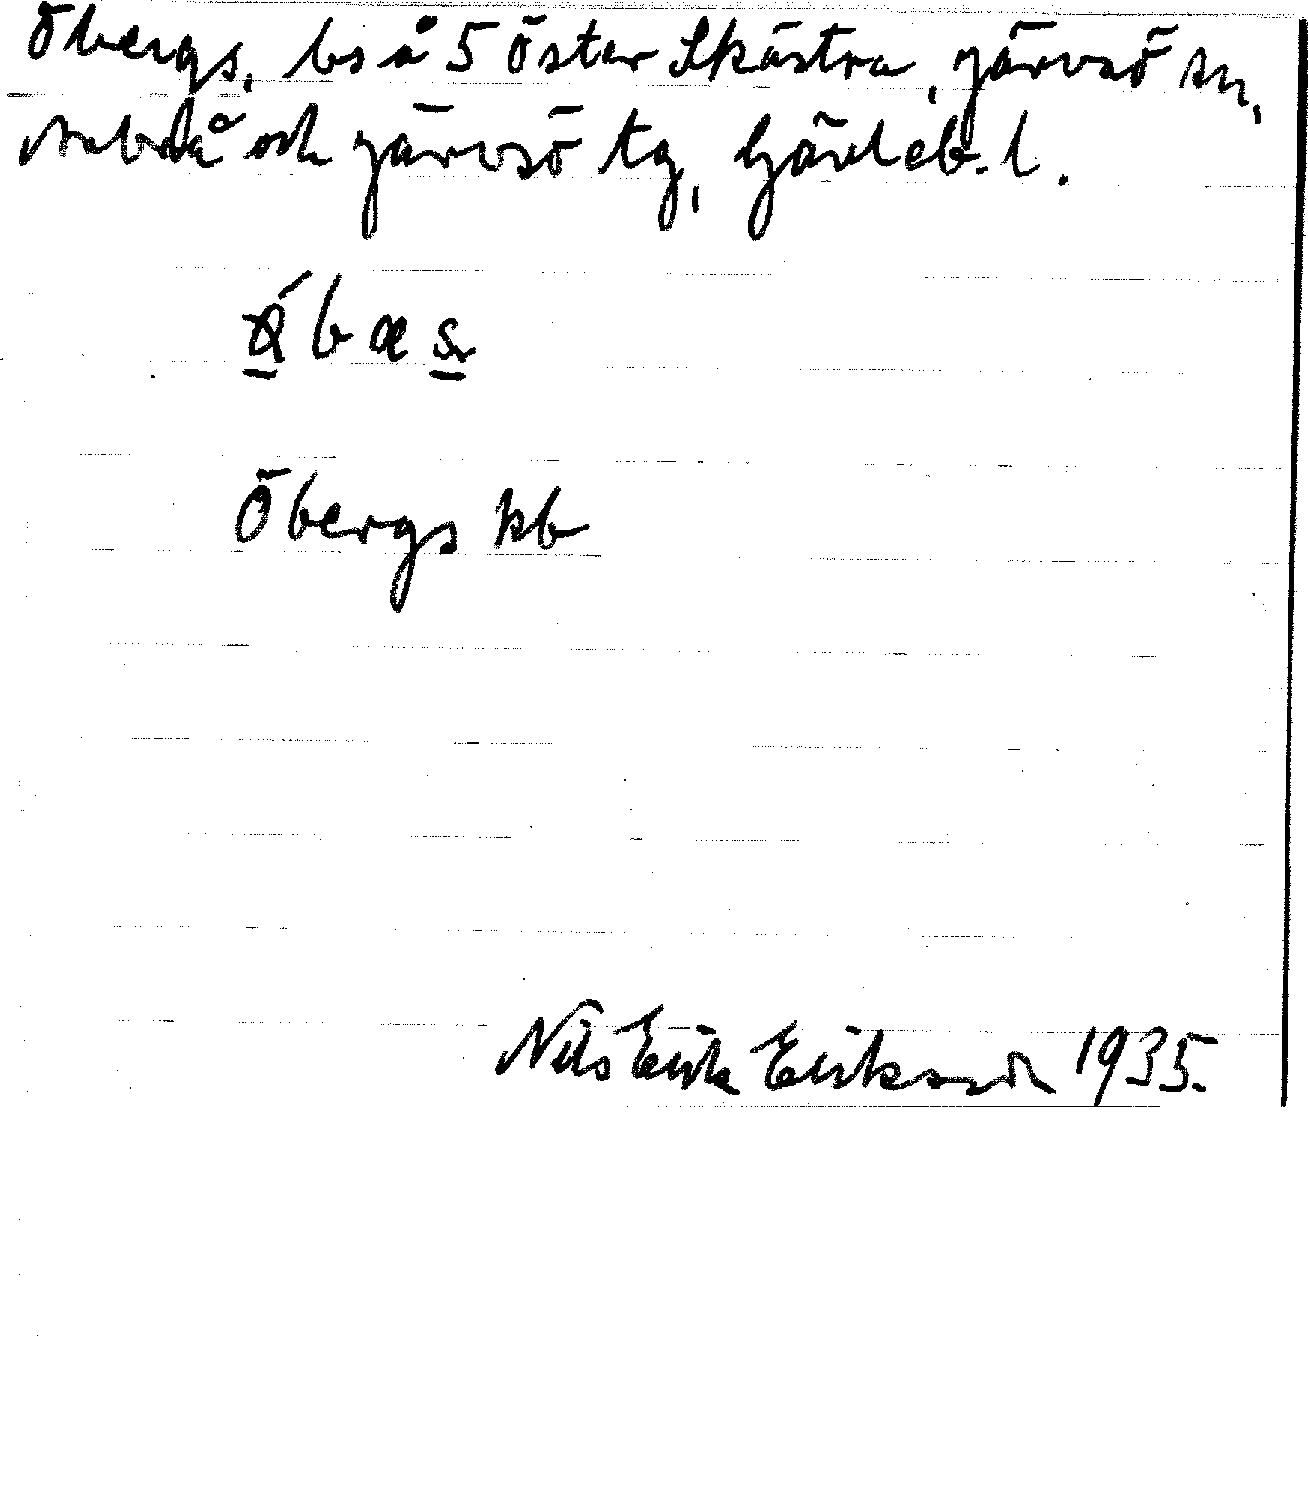 Öbergs, bs å 5 Öster Skästra, Järvsö sn,
Arbrå och Järvsö tg, Gävleb. l.
Öbergs kb
Nils Erik Eriksson 1935.